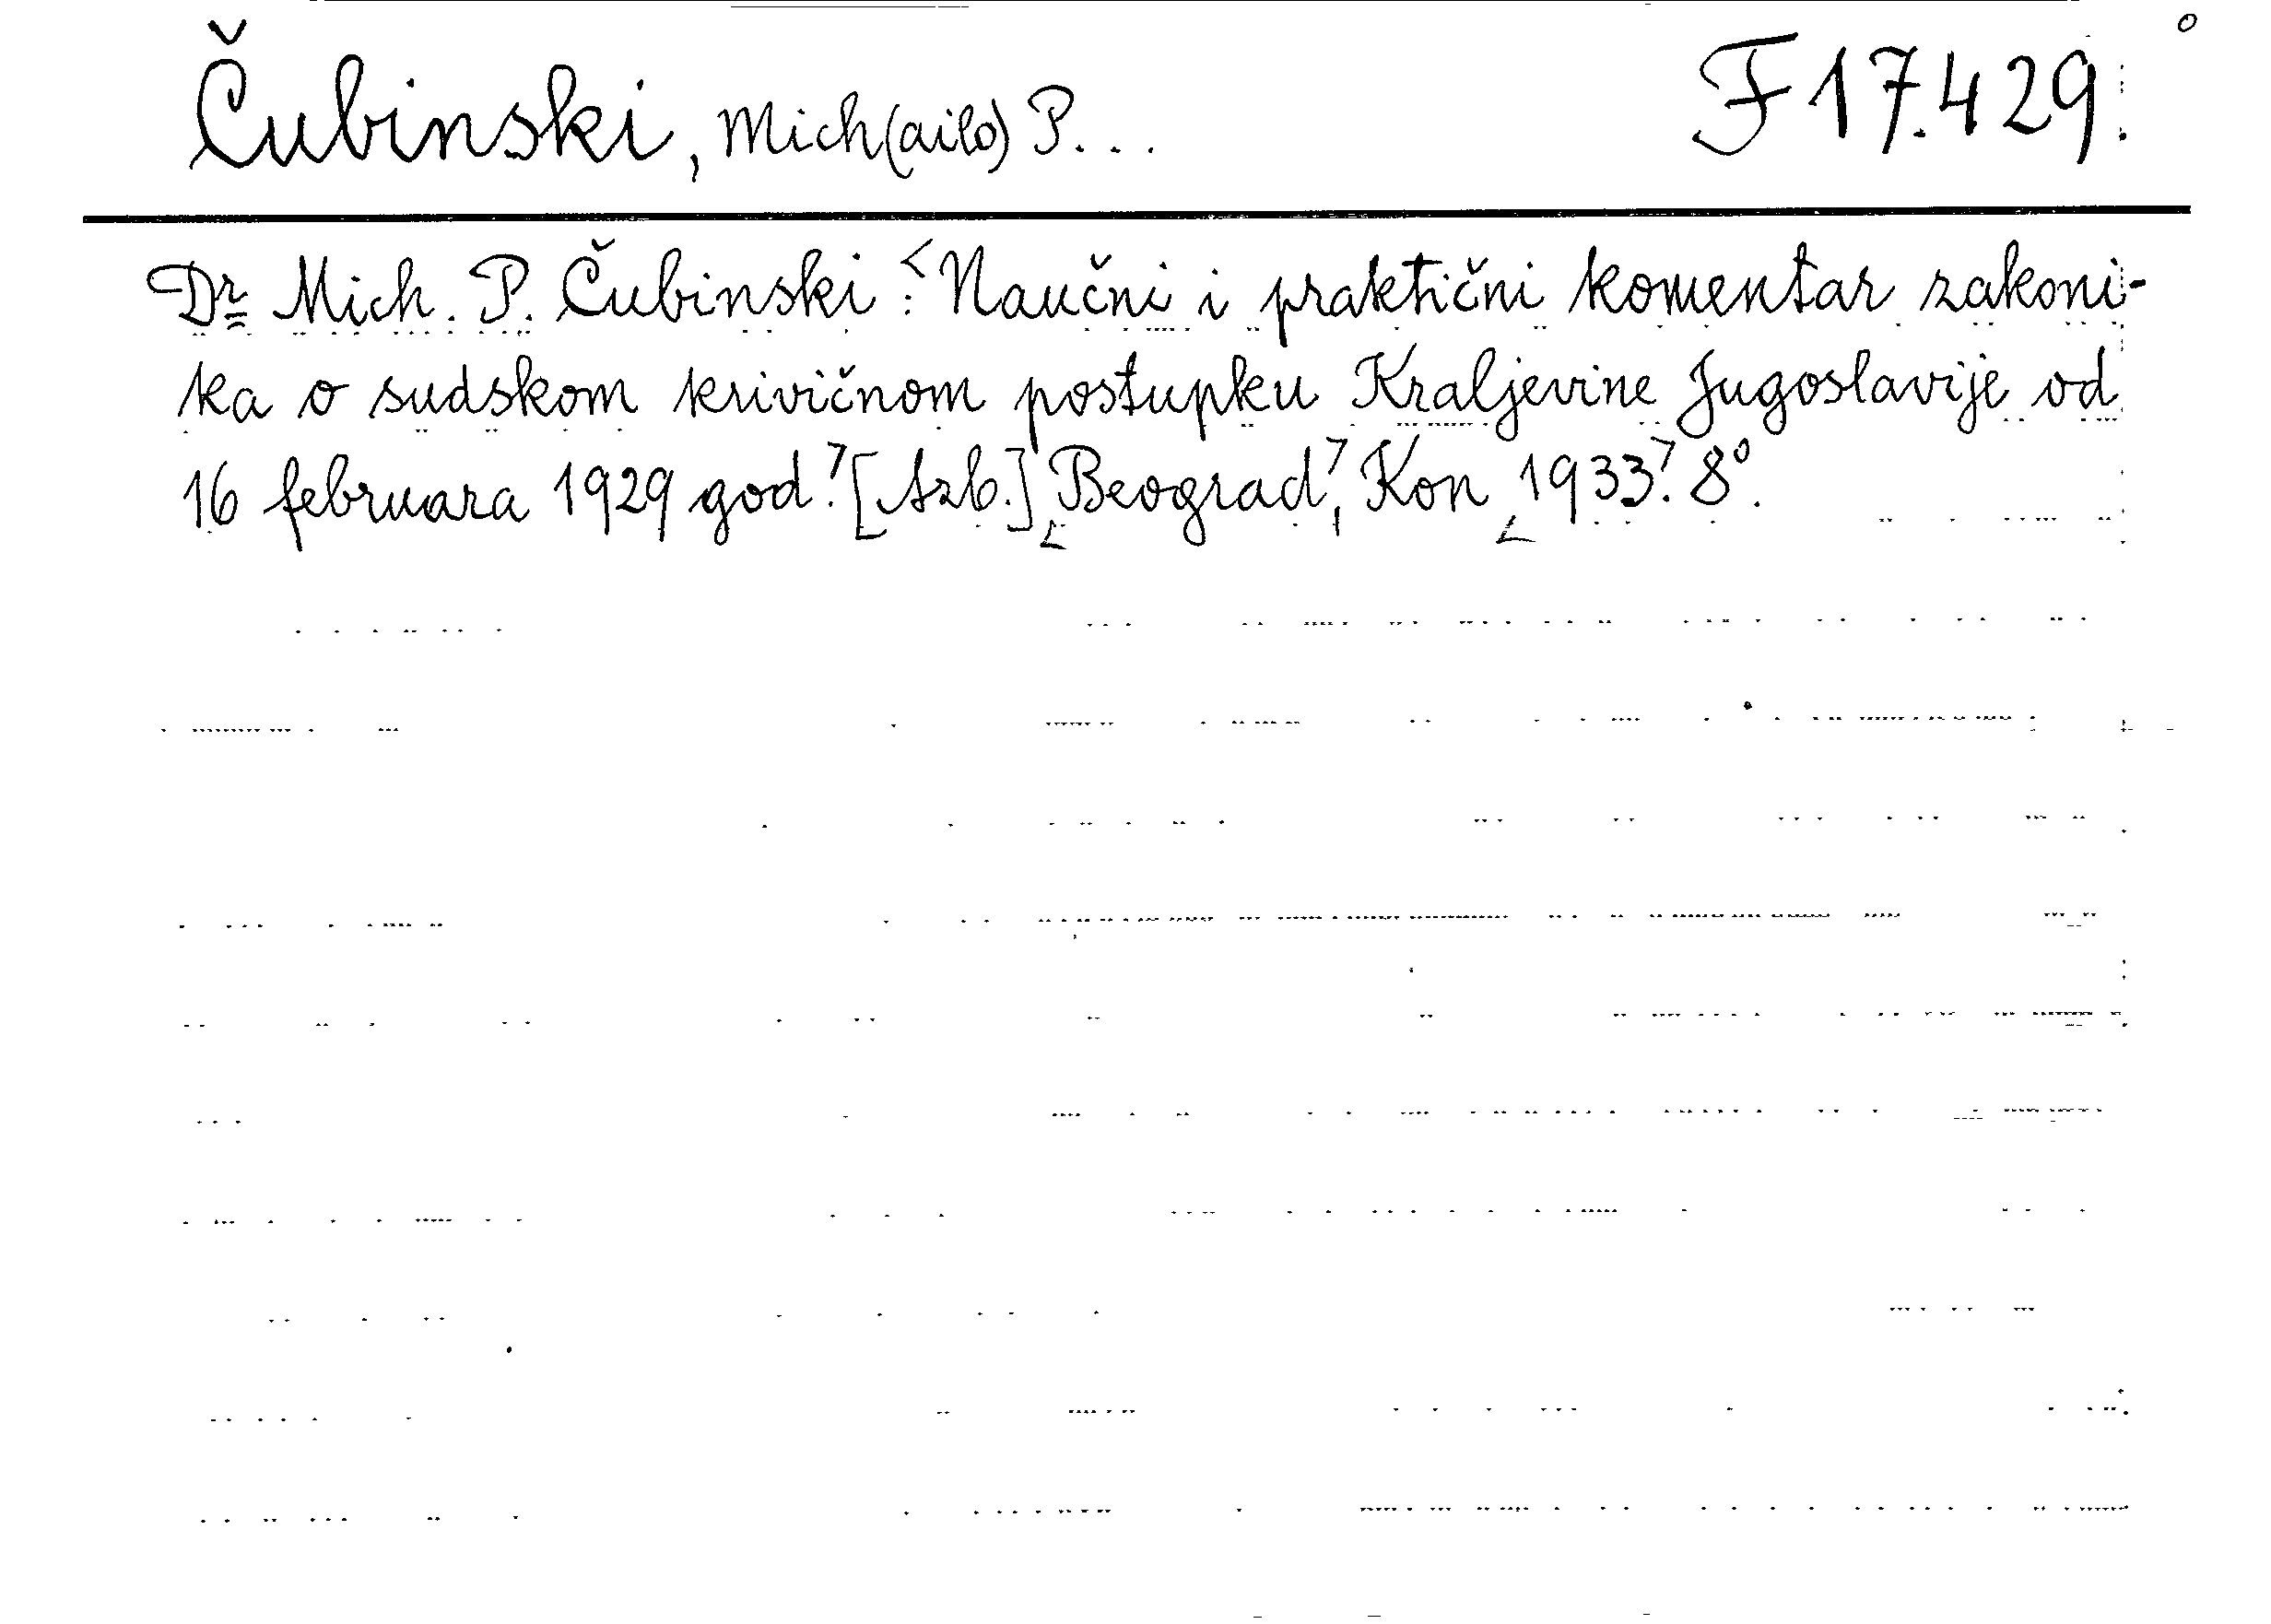 Čubinski, Mich(ailo) P... F 17.429.
Dr Mich. P. Čubinski: <Naučni i praktični komentar zakoni-
ka o sudskom krivičnom postupku Kraljevine Jugoslavije od
16 februara 1929 god.> [Azb.] <Beograd>, Kon <1933>. 8°.